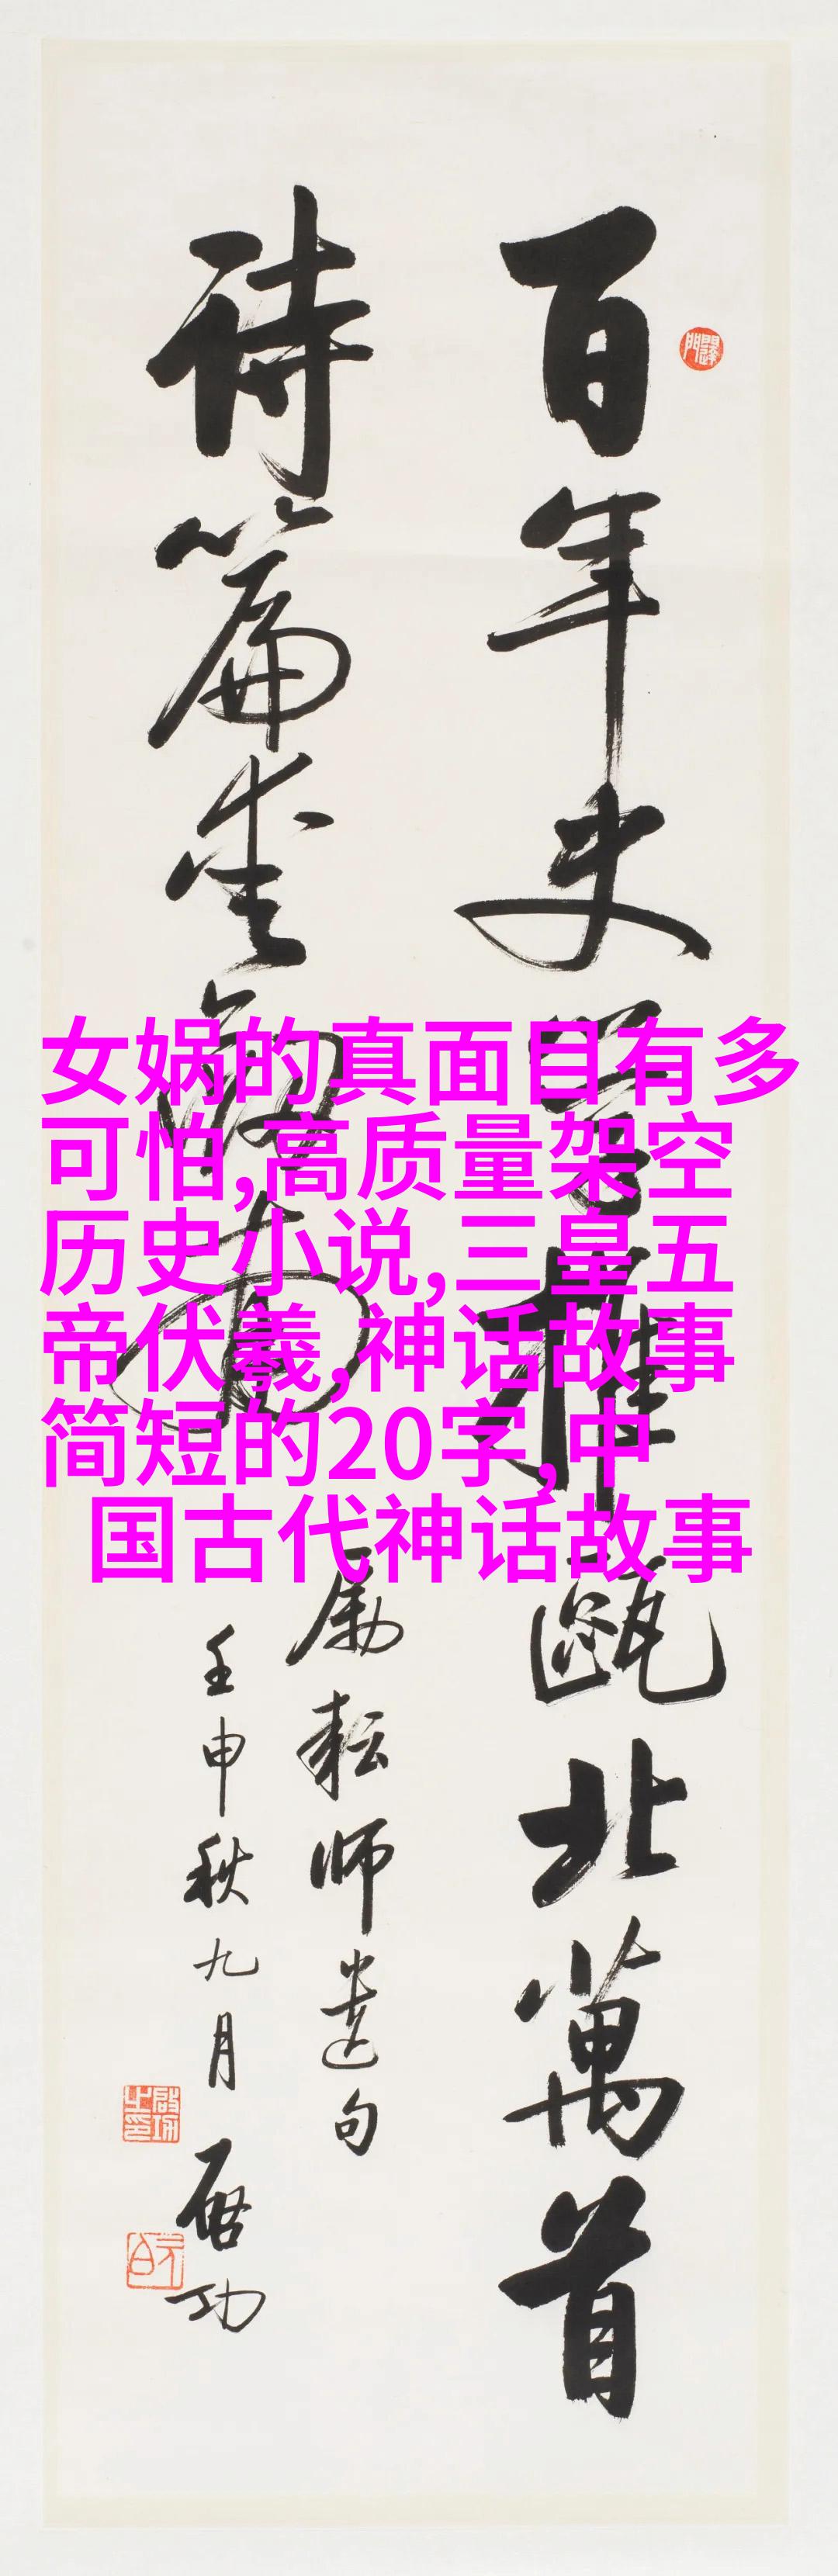 百年史學推甌北萬首
詩篇愛劍南
勵耘師遺句
壬申秋九月
啟功
女娲的真面目有多
可怕,高质量架空
历史小说,三皇五
帝伏羲,神话故事
简短的20字,中
国古代神话故事